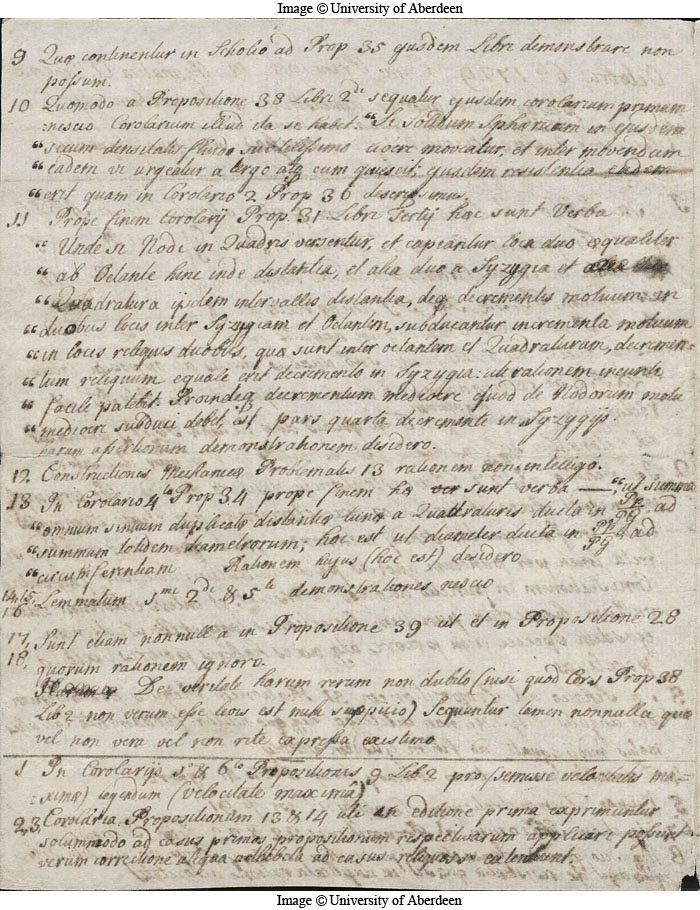 Image © University of Aberdeen
9 Quæ continentur in Scholio ad Prop 35 ejusdem Libri demonstrare non
possum.
10 Quomodo a Propositione 38 Libri 2di sequatur ejusdem corolarium primum
nescio Corolarium illud ita se habet. "Si solidum Sphæricum in ejusdem
"secum densitatis fluido subtilissimo libere moveatur, et inter movendum
"eadem vi urgeatur a tergo atq cum quiescit; ejusdem resistentia eadem
"erit quam in Corolario 2 Prop 36 descripsimus.
11 Prope finem Corolarij Prop. 31 Libri Tertij hæc sunt Verba
" Unde si Nodi in Quadris versentur, et capiantur loca duo æqualiter
" ab Octante hinc inde distantia, et alia duo a Syzygia et
" Quadratura ijsdem intervallis distantia, deq decrementis motuum in
"duobus locis inter Syzygiam et Octantem, subducantur incrementa motuum
"in locis reliquis duobus, quæ sunt inter octantem et Quadraturam, decremen-
"tum reliquum equale erit decremento in Syzygia: uti rationem ineunti
" facile patebit. Proindeq decrementum mediocre quod de Nodorum motu
"mediocre subduci debet, est pars quarta decrementi in Syzygijs.
harum assertionum demonstrationem desidero.
12. Constructiones Problematis 13 rationem non intelligo.
13 In Corolario 4to Prop 34 prope finem hæ sunt verba — "ut summa
"omnium sinuum duplicatæ distantiæ lunæ a Quadratures ducta in Pp/PG ad
"summum totidem diametrorum; hoc est ut diameter ducta in Pp/PG ad
"circumferentiam Rationem hujus (hoc est) desidero
14,15, Lemmatum 1mi 2di & 3tii demonstrationes nescio
16
17, Sunt etiam nonnulla in Propositione 39 ut et in Propositione 28
18, quorum rationem ignoro.
De veritate harum rerum non dubito (nisi quod Cor 1 Prop 38
Lib 2 non verum esse levis est mihi suspicio) Sequuntur tamen nonnulla quæ
vel non vera vel non rite expressa existimo
1 In Corolarijs 5to & 6to Propositionis 9 Lib 2 pro (semisse velocitatis ma-
ximæ) legendum (velocitate maxima)
2,3, Corolaria Propositionum 13 & 14 uti in editione prima exprimuntur
solummodo ad casus primos propositionum respectivarum applicari possunt
verum correctione aliqua adhibita ad casus reliquos extendunt.
Image © University of Aberdeen